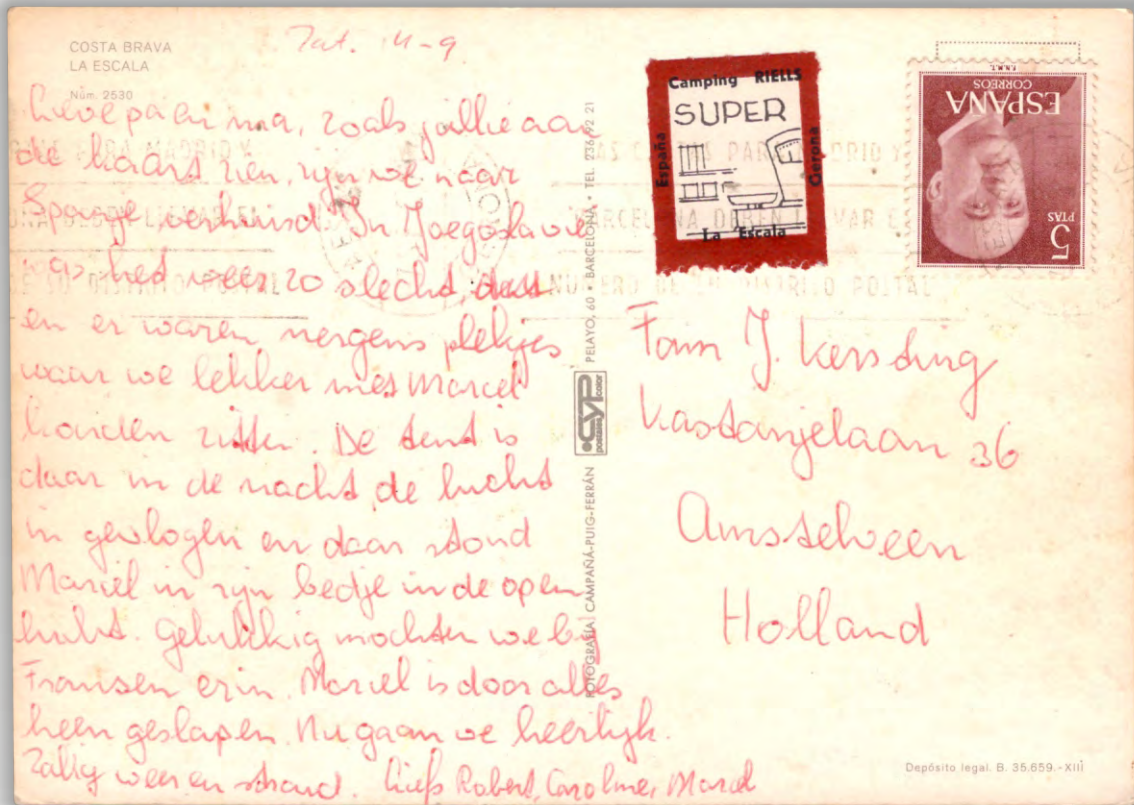 COSTA BRAVA
LA ESCALA
Núm. 2530
Zat. 14-9
Lieve pa en ma, zoals jullie aan
de kaart zien, zijn we naar
Spanje verhuisd. In Joegoslavie
was het weer zo slecht,
en er waren nergens plekjes
waar we lekker met Marcel
konden zitten. De tent is
daar in de nacht de lucht
in gevlogen en daar stond
Marcel in zijn bedje in de open
lucht. Gelukkig mochten we bij
Fransen erin. Marcel is door alles
heen geslapen. Nu gaan we heerlijk.
Zalig weer en strand. Liefs Robert, Caroline, Marcel
FOTOGRAFÍA CAMPAÑÁ-PUIG-FERRÁN
CYP
postales color
PELAYO, 60 • BARCELONA • TEL. 236 92 21
Camping RIELLS
SUPER
España
Gerona
La Escala
F.N.M.T.
ESPAÑA
CORREOS
5
PTAS
PARA MADRID Y
BARCELONA DEBEN LLEVAR EL
NUMERO DE SU DISTRITO POSTAL
Fam J. Kersting
Kastanjelaan 36
Amstelveen
Holland
Depósito legal. B. 35.659.-XIII